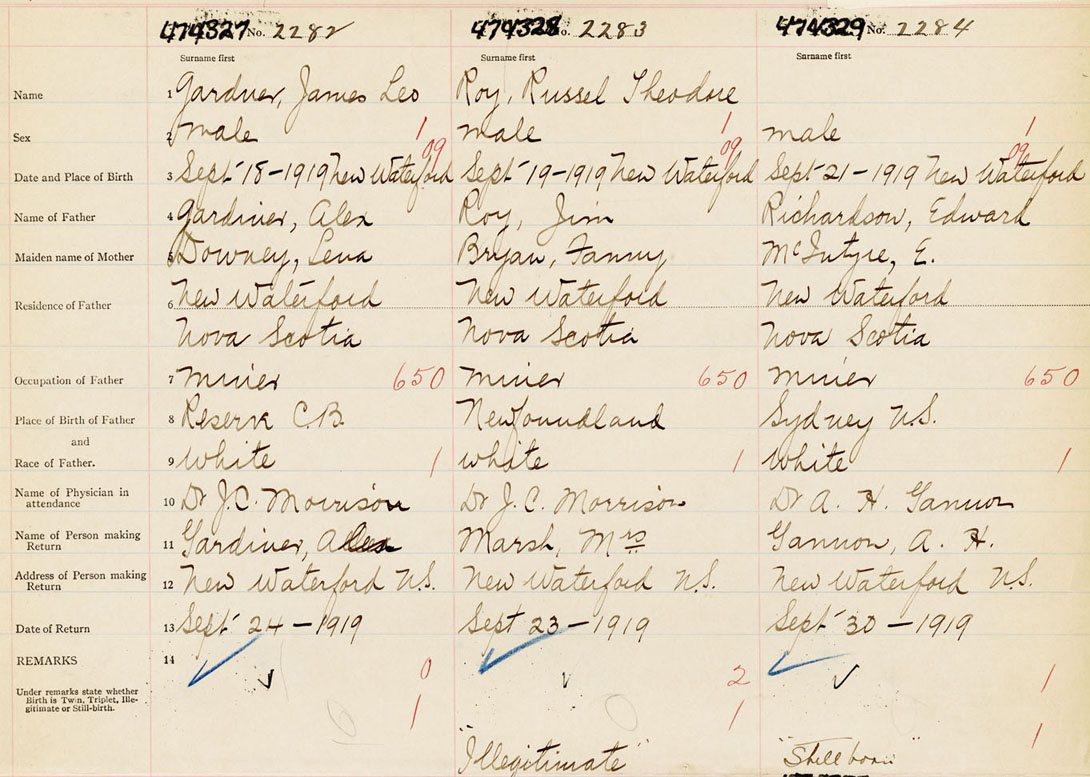 474327 No. 2282 474328 o. 2283 474329 No. 2284
Surname first Surname first Surname first
Name 1 Gardner, James Leo Roy, Russel Theodore
Sex 2 male 1 male 1 male 1
09 09 09
Date and Place of Birth 3 Sept 18-1919 New Waterford Sept 19-1919 New Waterford Sept 21-1919 New Waterford
Name of Father 4 Gardiner, Alex Roy, Jim Richardson, Edward
Maiden name of Mother 5 Downey, Lena Bryan, Fanny McIntyre, E.
Residence of Father 6 New Waterford New Waterford New Waterford
Nova Scotia Nova Scotia Nova Scotia
Occupation of Father 7 miner 650 miner 650 miner 650
Place of Birth of Father 8 Reserve C.B. Newfoundland Sydney N.S.
and
Race of Father. 9 White 1 White 1 White 1
Name of Physician in attendance 10 Dr J.C. Morrison Dr J.C. Morrison Dr A. H. Gannon
Name of Person making Return 11 Gardiner, Alex Marsh, Mrs Gannon, A. H.
Address of Person making Return 12 New Waterford N.S. New Waterford N.S. New Waterford N.S.
Date of Return 13 Sept 24-1919 Sept 23-1919 Sept 30-1919
REMARKS 14 0 2 1
Under remarks state whether
Birth is Twin, Triplet, Ille-
gitimate or Still-birth.
1 1 1
"Illegitimate" "Still born"